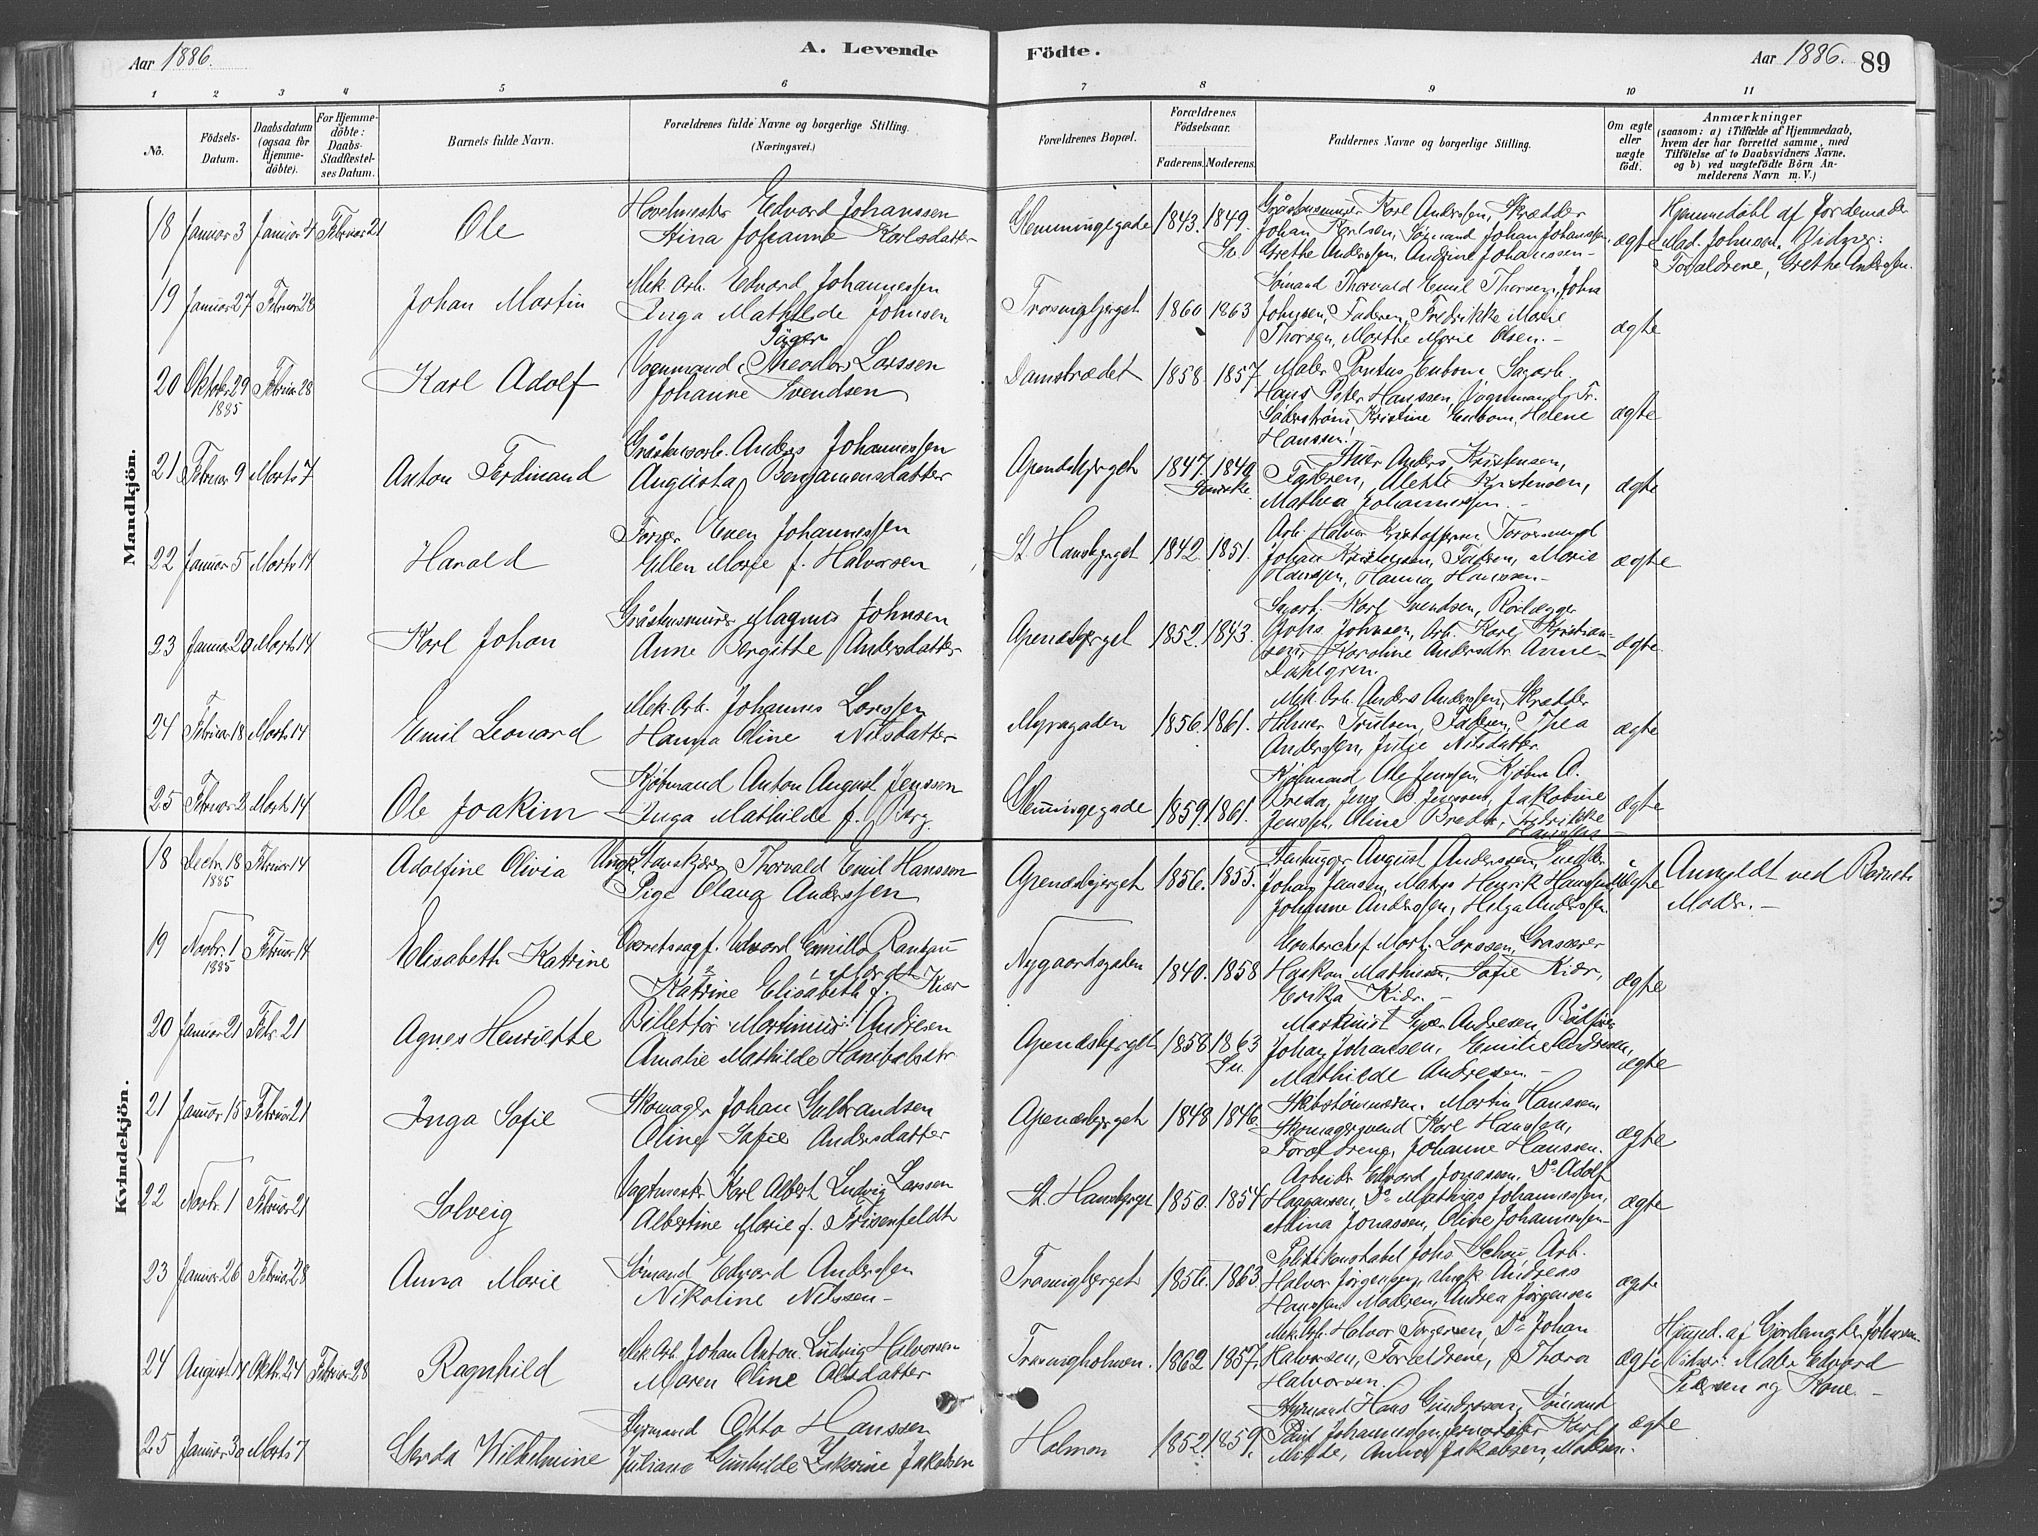 Aar 1886.
A. Levende
Födte.
Aar 1886.
89
1 2 3 4 5 6 7 8 9 10 11
No.
Födsels-
Datum.
Daabsdatum
(ogsaa for
Hjemme-
döbte).
For Hjemme-
döbte:
Daabs-
Stadfæstel-
ses Datum.
Barnets fulde Navn.
Forældrenes fulde Navne og borgerlige Stilling.
(Næringsvei.)
Forældrenes Bopæl.
Forældrenes
Födselsaar.
Faderens. Moderens.
Faddernes Navne og borgerlige Stilling.
Om ægte
eller
uægte
födt.
Anmærkninger
(saasom: a) i Tilfælde af Hjemmedaab,
hvem der har forrettet samme, med
Tilföielse af to Daabsvidners Navne,
og b) ved uægtefödte Börn An-
melderens Navn m. V.)
Mandkjön.
18 Januar 3 Januar 4 Februar 21
Ole
Hovelmester Edvard Johanssen
Stina Johanne Karlsdatter
Glemmingegade 1843. 1849.
Karl Anderssen, Skrædder
Johan Karlsen, Sømand Johan Johanssen,
Grethe Anderssen, Andrine Johanssen
ægte
Hjemmedøbt af Jordemoder
Mad. Johnsen. Vidner:
Forældrene, Grethe Anderssen.
19 Januar 27 Februar 28
Johan Martin
Mek. Arb. Edvard Johannessen
Inga Mathilde Johnsen
Trosvigbjerget 1860 1863
Sømand Thorvald Emil Thorsen, John
Johnsen, Faderen, Fredrikke Marie
Thorsen, Marthe Marie Olsen.
ægte
20 Oktober 29 Februar 28
1885
Karl Adolf
Vognmand Theodor Larssen
Johanne Svendsen
Damstrædet 1858. 1857.
Maler Pontus Enbom Sagarb.
Hans Peter Hanssen, Vognmand Fr.
Söderström, Kristine Enbom, Helene
Hanssen.
ægte
21 Februar 9 Marts 7
Anton Ferdinand
Gråstensarb. Anders Johannessen
Augusta Benjaminsdatter
Apenesbjerget 1847. 1840.
Svenske.
Anders Kristensen,
Faderen, Alette Kristensen,
Mathea Johannessen.
ægte
22 Januar 5 Marts 14
Harald
Farver Even Johannessen
Ellen Marie f. Halvorsen
St. Hansbjerget 1842. 1851.
Arb. Halvor Kristoffersen
Johan Kristensen, Faderen, Marie
Hanssen, Hanna Hanssen.
ægte
23 Januar 20 Marts 14
Karl Johan
Gråstensmurer Magnus Johnsen
Anne Bergitte Andersdatter
Apenesbjerget 1852. 1843.
Sagarb. Karl Svendsen, Rørlægger
Johs Johnsen, Arb. Karl Kristian-
sen, Karoline Andersdtr. Anne
Dahlgren.
ægte
24 Februar 18 Marts 14
Emil Leonard
Mek. Arb. Johannes Larssen
Hanna Oline Nilsdatter
Myragaden 1856. 1861.
Mek. Arb. Anders Anderssen, Skrædder
Hilmer Trulsen, Faderen, Thea
Anderssen, Julie Nilsdatter.
ægte
25 Februar 2 Marts 14
Ole Joakim
Kjøbmand Anton August Jenssen
Inga Mathilde f. Berg.
Glemmingegade 1859. 1861.
Kjøbmand Ole Jenssen, Kjøbm A.
Breda, Jens B. Jenssen, Jakobine
Jenssen, Oline Breda, Fredrikke
Hanssen
ægte
Kvindekjön.
18 Decbr. 18 Februar 14
1885
Adolfine Olivia
Ungk. Thorvald Emil Hanssen
Pige Olava Anderssen
Apenesbjerget 1856. 1855.
Stenhugger August Anderssen, Snedker
Johan Jansen, Mats Henrik Hanssen
Johanne Anderssen, Helga Anderssen.
Uægte
Anmeldt ved Barnets
Moder.
19 Novbr. 1 Februar 14
1885
Elisabeth Katrine
Overretssagf. Edvard Emilla Rantzau
Katrine Elisabeth f. Kiær
Nygaardsgaden 1840. 1858
Kontorchef Mort. Larssen, Grosserer
Haakon Mathiesen, Sofie Kiær,
Erika Kiær.
ægte
20 Januar 21 Febr. 21
Agnes Henriette
Billettör Martinius Andresen
Amalie Mathilde Hanibalsdtr.
Apenesbjerget 1858 1863
Maskinist Andresen
Johan Johansen, Emilie Andresen,
Mathilde Andresen.
ægte
21 Januar 15 Februar 21
Inga Sofie
Skomager Johan Gulbrandsen
Oline Sofie Andersdatter
Apenæsbjerget 1848 1846.
Skibstømmerm. Martin Hanssen
Skomagersvend Karl Hanssen,
Forældrene, Johanne Hanssen.
ægte
22 Novbr. 1 Februar 21
Solveig
Vagtmester Karl Albert Ludvig Larssen
Albertine Marie f. Frisenfeldt
St. Hansbjerget 1850. 1854
Arbeider Edvard Jonassen. Do Adolf
Haagensen, Do Mathias Johannessen,
Mina Jonassen, Oline Johannessen
ægte
23 Januar 26 Februar 28
Anna Marie
Sømand Edvard Anderssen
Nikoline Nilssen
Trosvigbjerget 1856. 1863
Politikonstabel Johs Schou Arb.
Halvor Jörgensen, Ungk. Andreas
Hanssen, Moderen, Andrea Jörgensen
ægte
24 August 14 Oktbr. 24 Februar 28
Ragnhild
Mek. Arb. Johan Anton Ludvig Halvorsen
Maren Oline Olsdatter
Trosvigholmen. 1862 1857.
Mek. Arb. Halvor Torgersen, Do Johan
Halvorsen, Forældrene, Thora
Halvorsen.
ægte
Hjemmed. af Gjordemoder Johnsen
Vidner: Maler Edvard
Pedersen og Kone.
25 Januar 30 Marts 7
Gerda Wilhelmine
Styrmand Otto Hanssen
Juliane Gunhilde Zakarine Jakobsen
Holmen 1852. 1859.
Styrmand Hans Gundersen, Sømand
Paul Johannessen, Karl
Anna Jakobsen, Moderen.
ægte